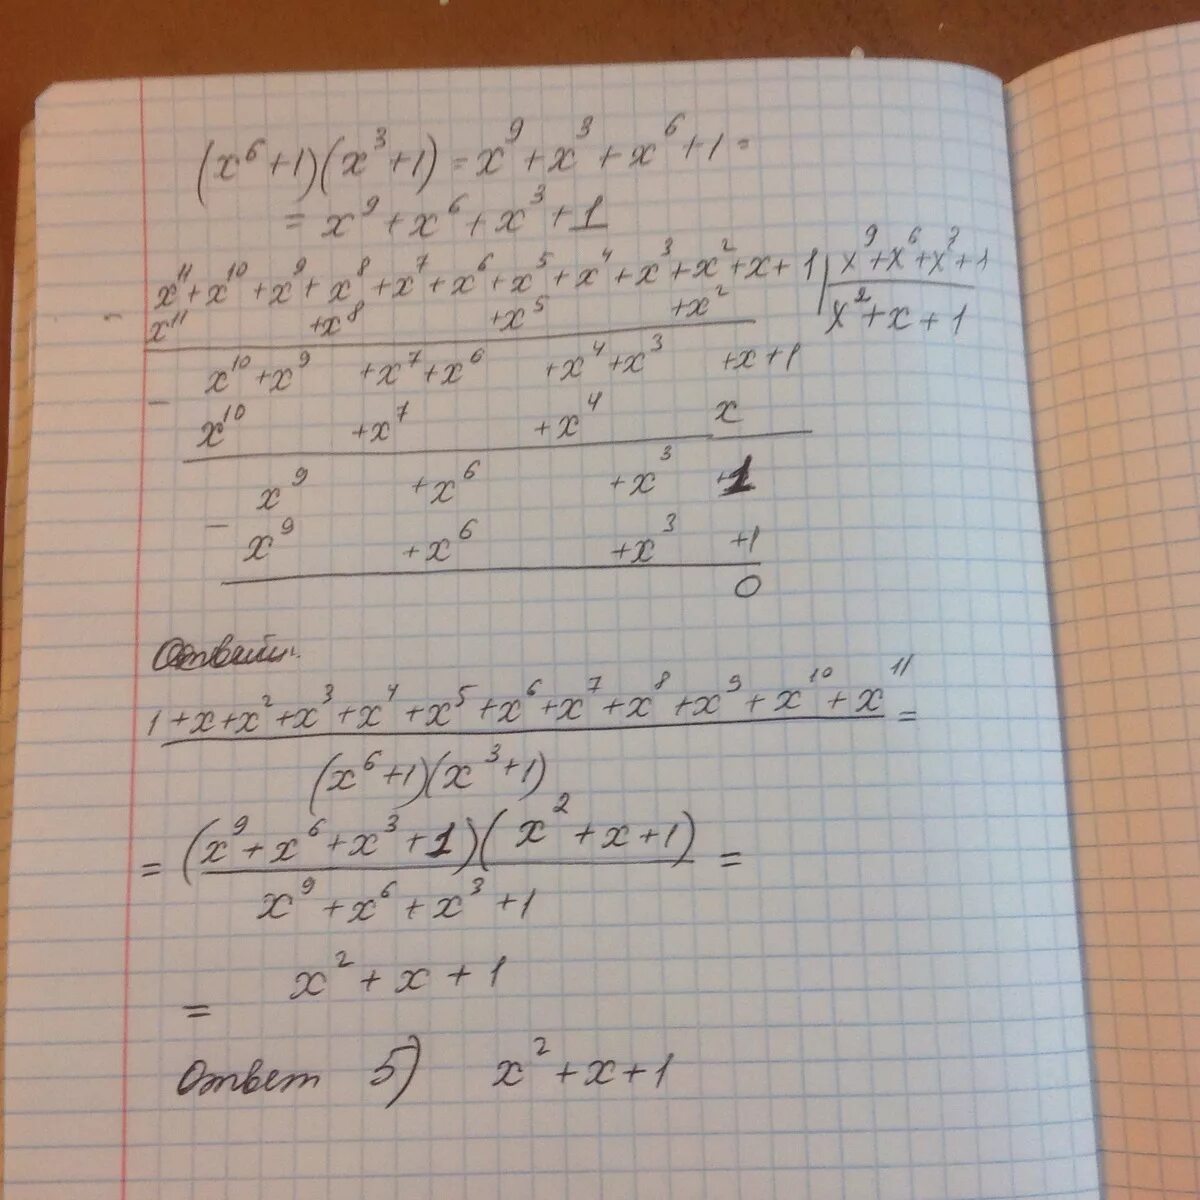 (x⁶+1)(x³+1) = x⁹+x³+x⁶+1 =
= x⁹+x⁶+x³+1
x¹¹+x¹⁰+x⁹+x⁸+x⁷+x⁶+x⁵+x⁴+x³+x²+x+1 | x⁹+x⁶+x³+1
- x¹¹ +x⁸ +x⁵ +x² x²+x+1
x¹⁰+x⁹ +x⁷+x⁶ +x⁴+x³ +x+1
- x¹⁰ +x⁷ +x⁴ x
x⁹ +x⁶ +x³ +1
- x⁹ +x⁶ +x³ +1
0
1+x+x²+x³+x⁴+x⁵+x⁶+x⁷+x⁸+x⁹+x¹⁰+x¹¹ =
(x⁶+1)(x³+1)
= (x⁹+x⁶+x³+1)(x²+x+1) =
x⁹+x⁶+x³+1
= x²+x+1
Ответ 5) x²+x+1